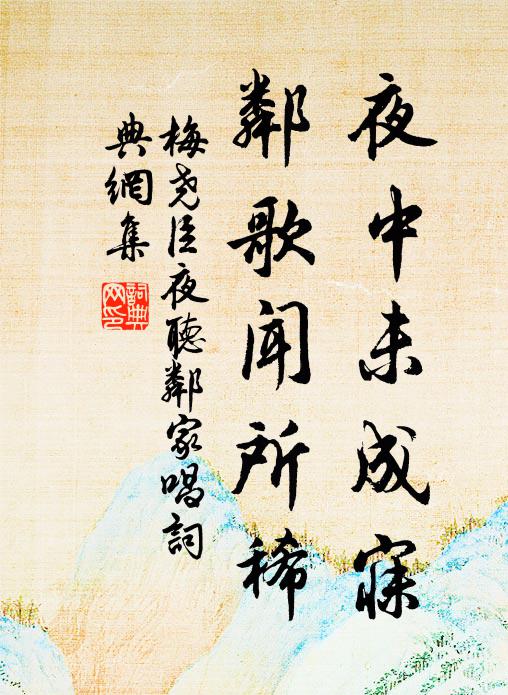 夜中未成寐
鄰歌聞所稀
梅堯臣夜聽鄰家唱詞
典網集
詞典網印